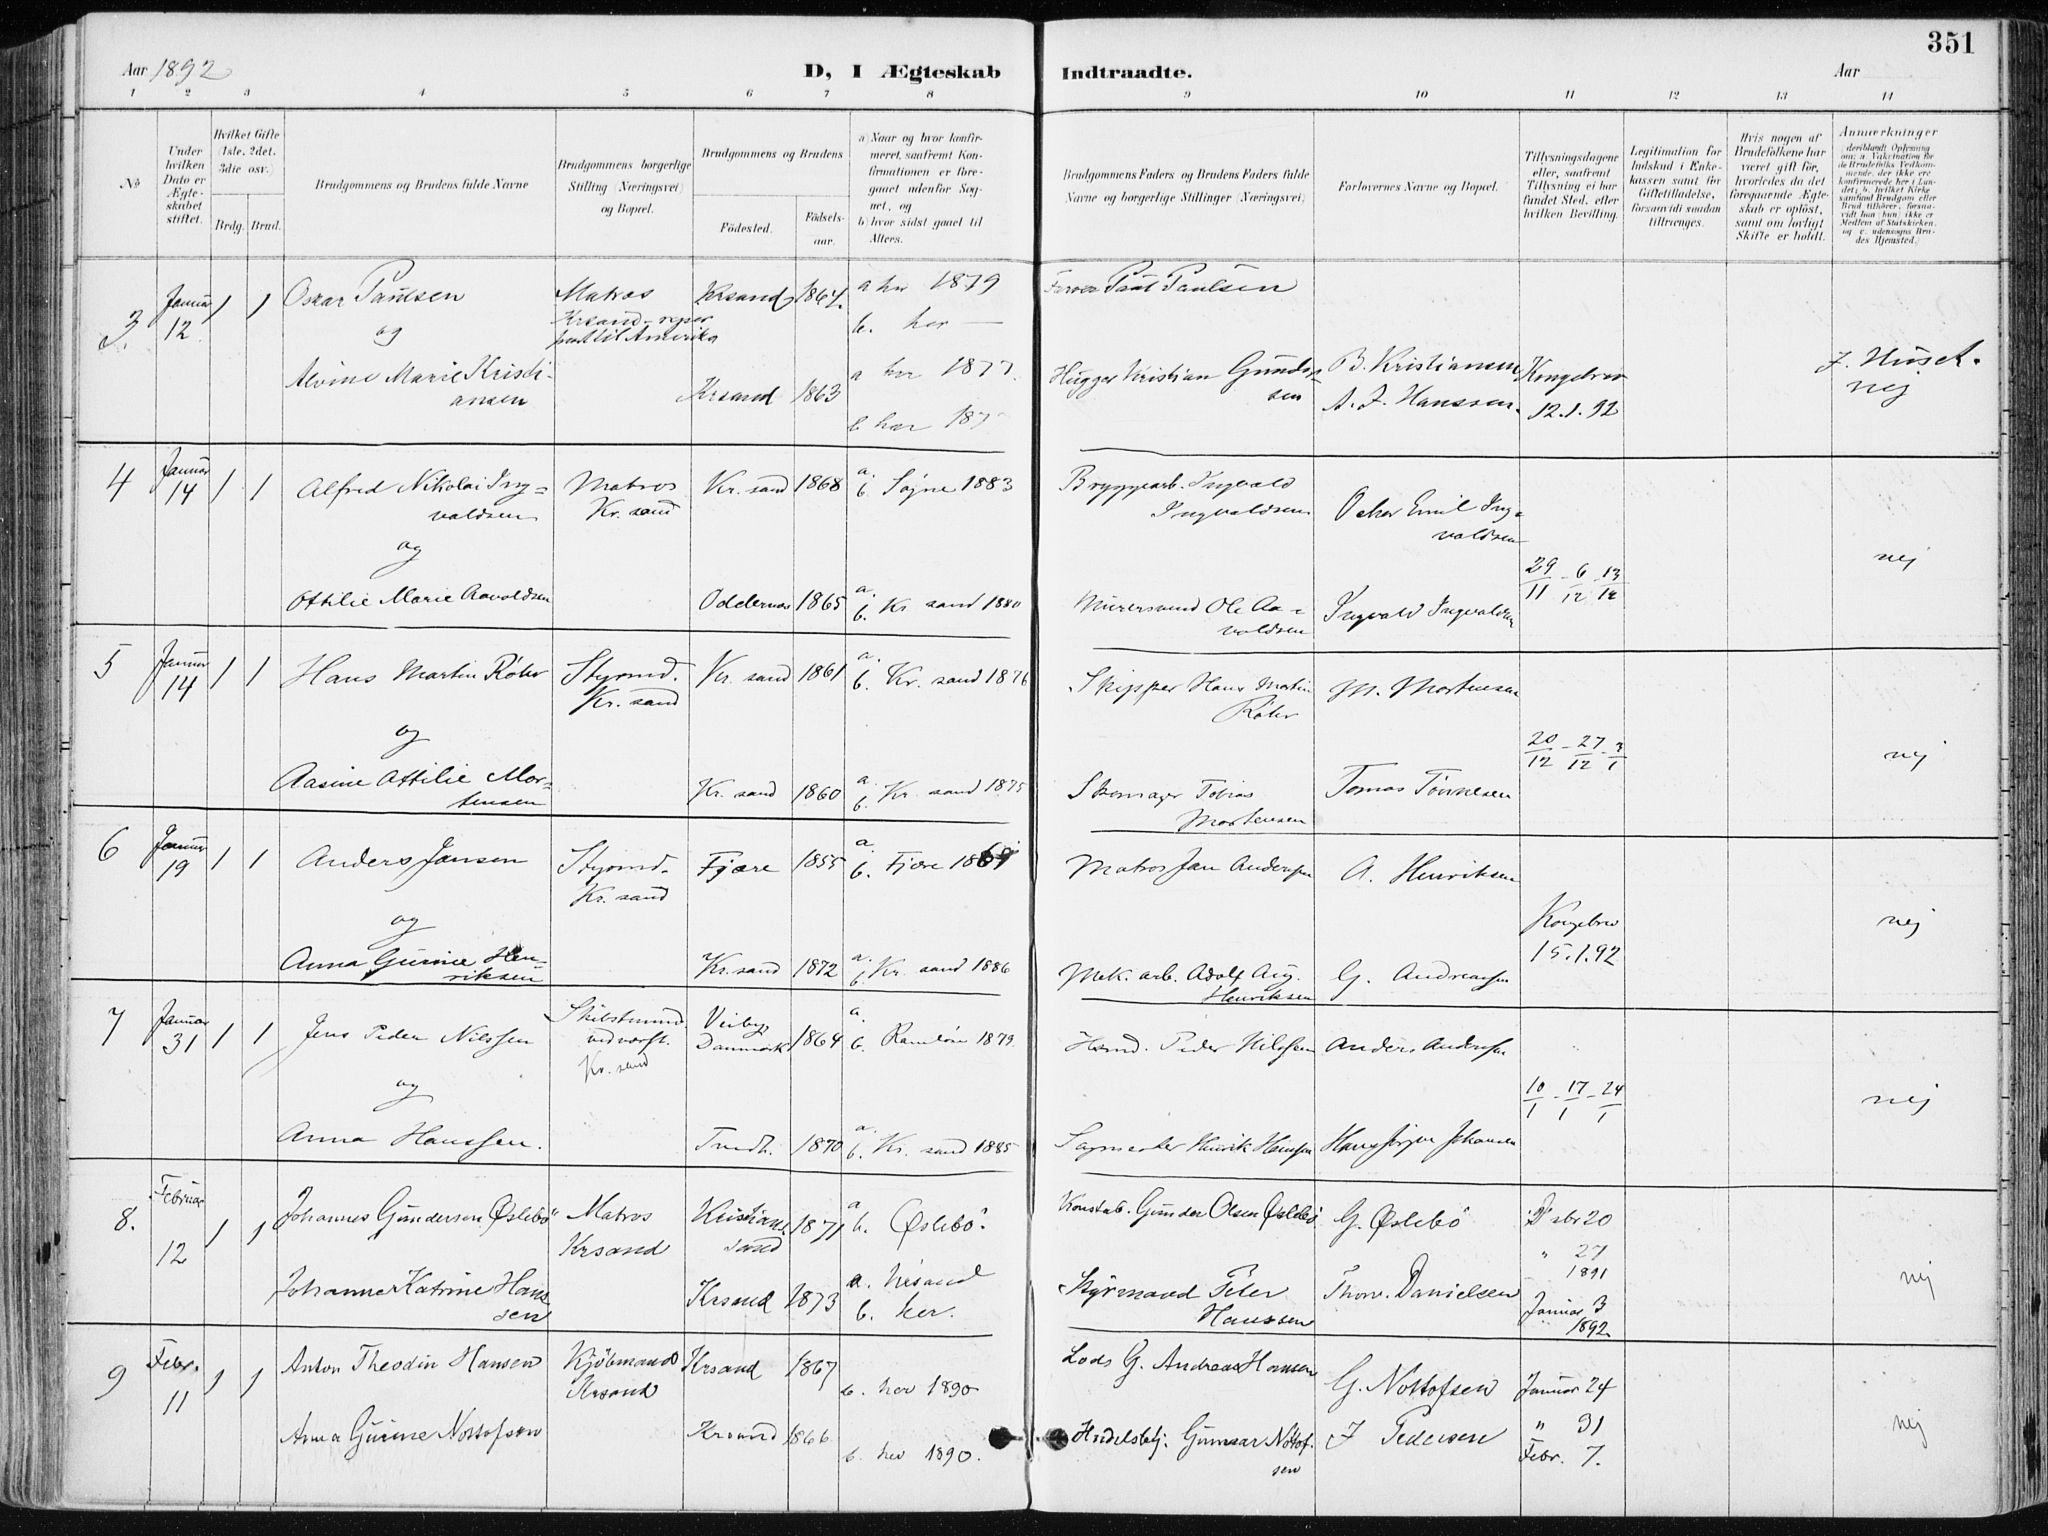 351
Aar 1892
D, I Ægteskab Indtraadte.
Aar
1 2 3 4 5 6 7 8 9 10 11 12 13 14
No
Under hvilken Dato er Ægteskabet stiftet.
Hvilket Gifte (1ste, 2det, 3die osv.)
Brdg. Brud.
Brudgommens og Brudens fulde Navne
Brudgommens borgerlige Stilling (Næringsvei) og Bopæl.
Brudgommens og Brudens
Fødested.
Fødselsaar.
a) Naar og hvor konfirmeret, saafremt Konfirmationen er foregaaet udenfor Sognet, og
b) hvor sidst gaaet til Alters.
Brudgommens Faders og Brudens Faders fulde Navne og borgerlige Stillinger (Næringsvei)
Forlovernes Navne og Bopæl.
Tillysningsdagene eller, saafremt Tillysning ei har fundet Sted, efter hvilken Bevilling.
Legitimation for Indskud i Enkekassen samt for Giftetilladelse, forsaavidt saadan tiltrænges.
Hvis nogen af Brudefolkene har været gift før, hvorledes da det foregaaende Ægteskab er opløst, samt om lovligt Skifte er holdt.
Anmærkninger
3. Januar 12 1 1 Oskar Paulsen Matros Krsand 1864 a her 1879 Paul Paulsen
og Krsand b. her
til Amerika
Alvine Marie Kristiansen Krsand 1863 a her 1877 Hugger Kristian Gundersen B. Kristiansen Kongebrev
b her A. J. Hanssen. 12.1.92 nej
4 Januar 14 1 1 Alfred Nikolai Ingvaldsen Matros Kr. sand 1868 a. b. Søgne 1883 Bryggearb. Ingvald Ingvaldsen Oskar Emil Ingvaldsen
Kr. sand
og 29/11 - 6/12 - 13/12 nej
Ottilie Marie Aavoldsen Oddernes 1865 a. b. Kr. sand 1880 Murersvend Ole Aavoldsen Ingvald Ingvaldsen
5 Januar 14 1 1 Hans Martin Röhr Styrmd. Kr. sand 1861 a. b. Kr. sand 1876 Skipper Hans Martin Röhr M. Mortensen
Kr. sand
og 20/12 - 27/12 - 3/1 nej
Aasine Ottilie Mortensen Kr. sand 1860 a. b. Kr. sand 1875 Skomager Tobias Mortensen Tomas Tönnesen
6 Januar 19 1 1 Anders Jansen Styrmd. Fjære 1855 a. b. Fjære 1869 Matros Jan Andersen A. Henriksen
Kr. sand
og Kongebrev nej
15.1.92
Anna Gurine Henriksen Kr. sand 1872 a. b. Kr. sand 1886 Mek. arb. Adolf Aug. Henriksen G. Andreasen
7 Januar 31 1 1 Jens Peder Nilssen Skibstømmermd. Veiby Danmark 1864 a. b. Ramløse 1879 Peder Nilssen Anders Andersen
ved værft.
Kr. sand
og 10/1 - 17/1 - 24/1 nej
Anna Hanssen. Trondh. 1870 a. b. Kr. sand 1885 Henrik Hanssen Hans Jørgen Johansen
8. Februar 12 1 1 Johannes Gundersen Øslebö Matros Kristiansand 1871 a b. Øslebö. Konstab. Gunder Olsen Øslebö G. Øslebö Dsbr 20
Krsand " 27
1891
Johanne Katrine Hanssen Krsand 1873 a. Krsand b. her. Styrmand Peter Hanssen Thom. Danielsen Januar 3 1892 nej
9 Febr. 11 1 1 Anton Theodin Hansen Kjøbmand Krsand 1867 b. her 1890 Lods G. Andreas Hansen G. Nottofsen Januar 24
Krsand
Anna Gurine Nottofsen Krsand 1866 b. her 1890. Handelsbtj. Gunnar Nottofsen J Pedersen " 31
Febr. 7. nej